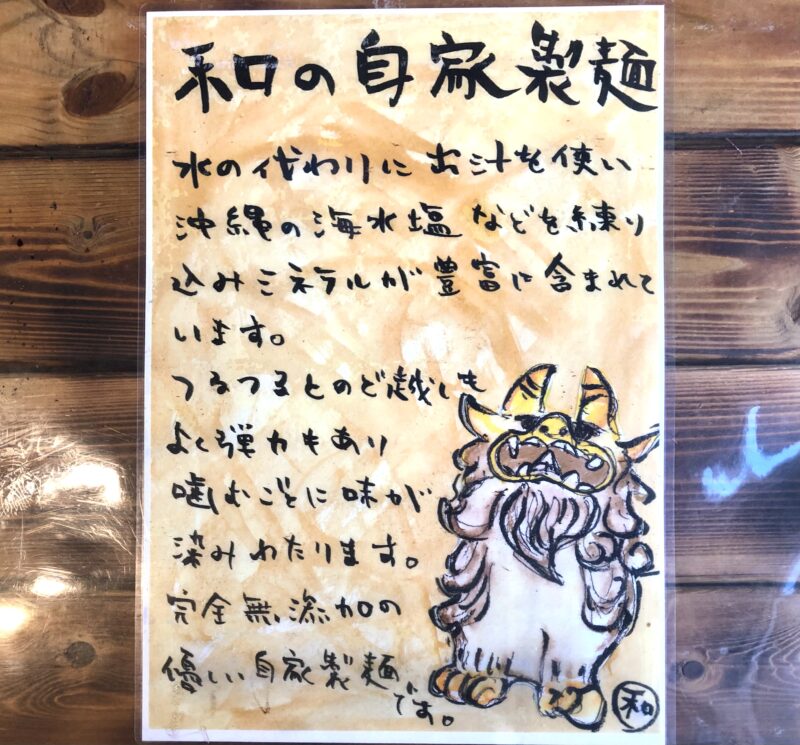 和の自家製麺
水の代わりに出汁を使い
沖縄の海水塩などを練り
込みミネラルが豊富に含まれて
います。
つるつるとのど越しも
よく弾力もあり
噛むごとに味が
染みわたります。
完全無添加の
優しい自家製麺
です。
和